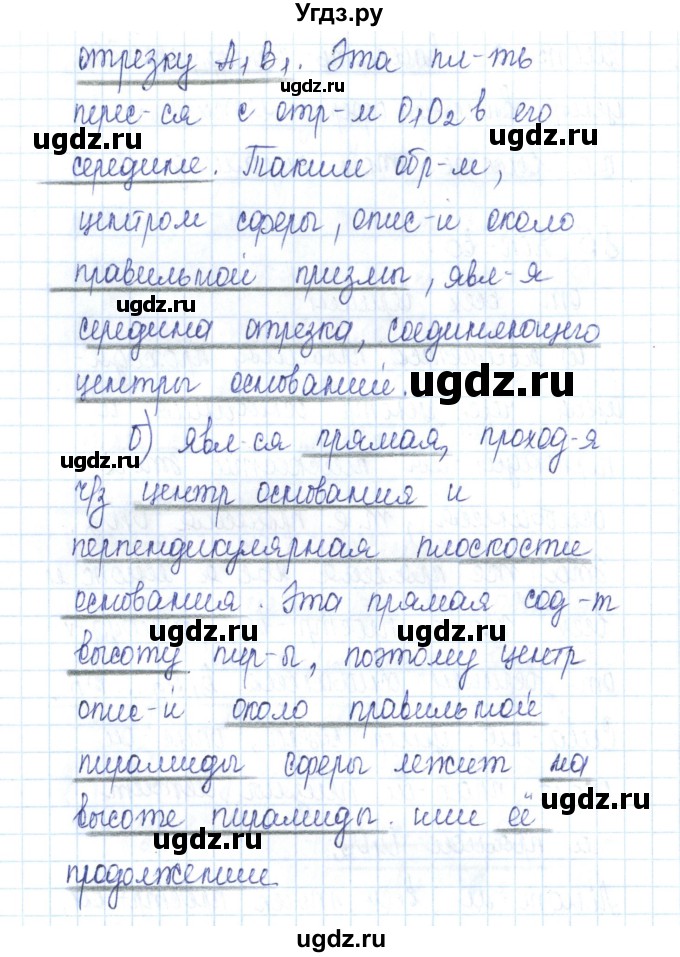 Угдз.ру
отрезку A₁B₁. Эта пл-ть
ugdz.ru
перес-ся с отр-м O₁O₂ в его
ugdz.ru ugdz.ru
середине. Таким обр-м,
центром сферы, опис-й около
правильной призмы, явл-я
ugdz.ru ugdz.ru
середина отрезка, соединяющего
центры оснований. ugdz.ru
б) явл-ся прямая, проход-я
ugdz.ru
ч/з центр основания и
перпендикулярная плоскости
основания. Эта прямая сод-т
ugdz.ru ugdz.ru
высоту пир-ы, поэтому центр
опис-й около правильной
пирамиды сферы лежит на
ugdz.ru ugdz.ru
высоте пирамиды или её
продолжении.
ugdz.ru